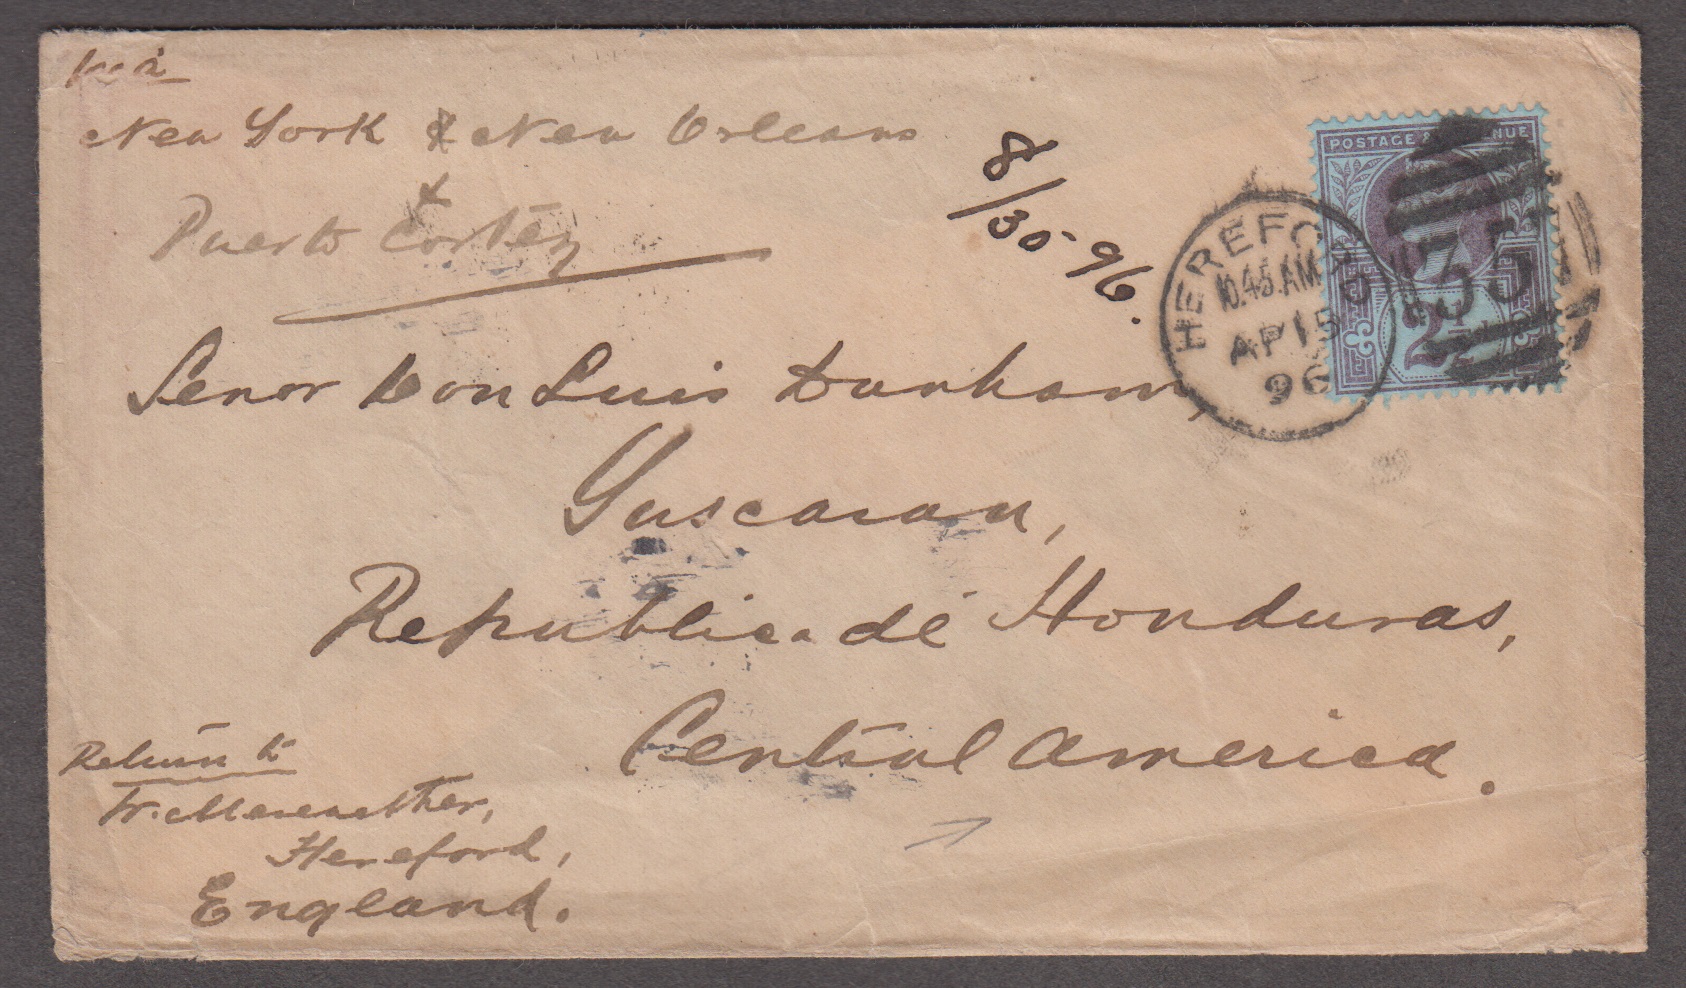 Via
New York & New Orleans
&
Puerto Cortéz
8/30-96.
POSTAGE & REVENUE
HEREFORD
10.45.AM
AP 15
96
2½
Senor Don Luis Dunham,
Yuscaran,
Republica de Honduras,
Central America.
Return to
W. Merewether,
Hereford,
England.